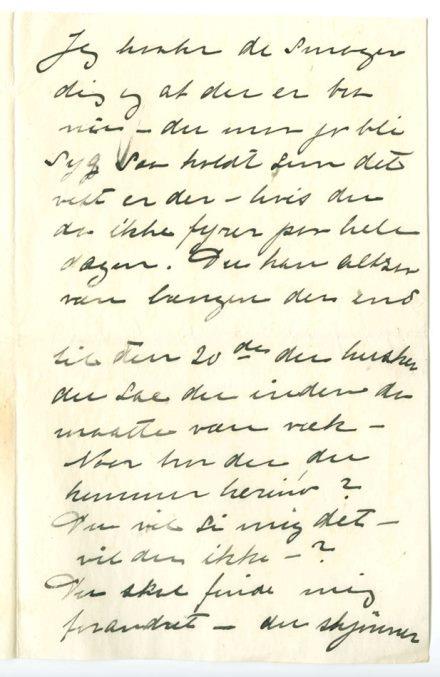 Jeg haaber de smager
dig og at der er bra
du maa jo bli
syg saa holdt som det
vist er der – hvis du
da ikke fyrer paa hele
dagen. Du kan altsaa
være længer der end
til den 20de du husker
du sae du inden da
maatte være væk –
Naar tror du du
kommer herind?
Du vil si mig det –
vil du ikke – ?
Du skal finde mig
forandret – du skjønner